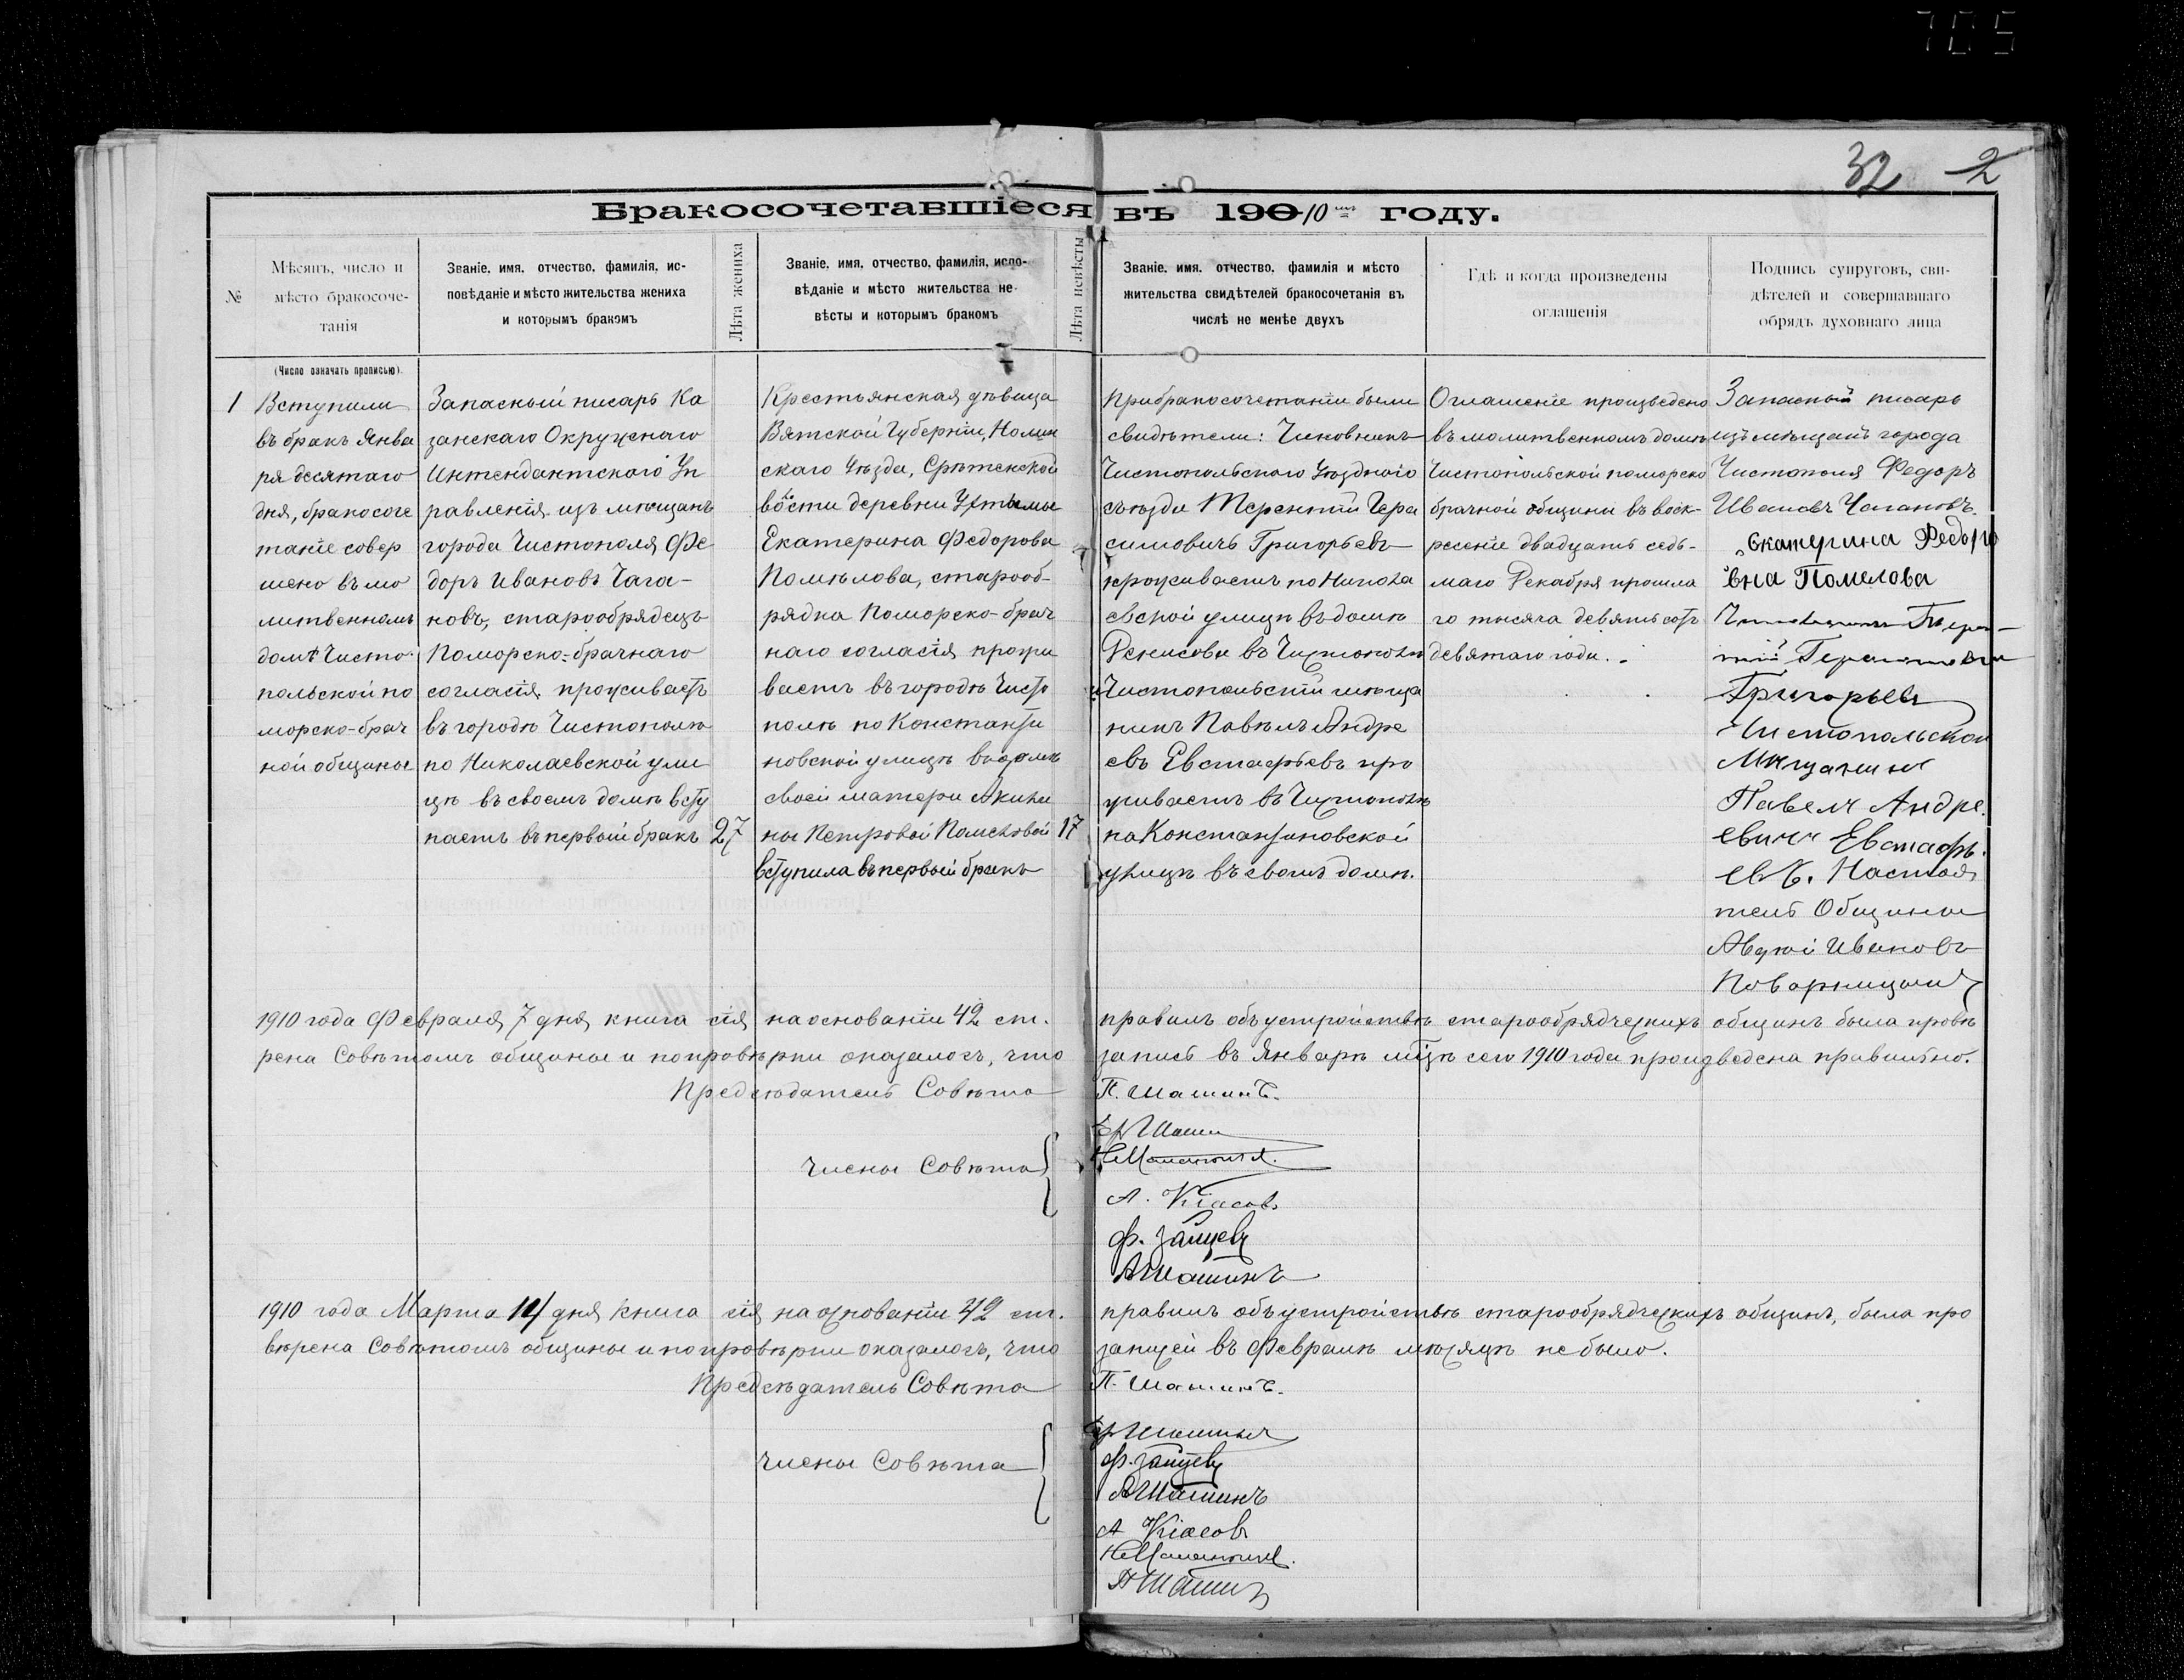 32 2
Бракосочетавшіеся въ 190 10мъ году.
№
Мѣсяцъ, число и
мѣсто бракосоче-
танія
Званіе, имя, отчество, фамилія, ис-
повѣданіе и мѣсто жительства жениха
и которымъ бракомъ
Лѣта жениха
Званіе, имя, отчество, фамилія, испо-
вѣданіе и мѣсто жительства не-
вѣсты и которымъ бракомъ
Лѣта невѣсты
Званіе, имя, отчество, фамилія и мѣсто
жительства свидѣтелей бракосочетанія въ
числѣ не менѣе двухъ
Гдѣ и когда произведены
оглашенія
Подпись супруговъ, сви-
дѣтелей и совершавшаго
обрядъ духовнаго лица
(Число означать прописью).
1
Вступили
въ бракъ Янва
ря десятаго
дня, бракосоче
таніе совер
шено въ мо
литвенномъ
домѣ Чисто
польской по
морско-брач
ной общины
Запасный писарь Ка
занскаго Окружнаго
Интендантскаго Уп
равленія изъ мѣщанъ
города Чистополя Фе
доръ Ивановъ Чага-
новъ, старообрядецъ
Поморско-брачнаго
согласія, проживаетъ
въ городѣ Чистополѣ
по Николаевской ули
цѣ въ своемъ домѣ всту
паетъ въ первый бракъ
27
Крестьянская дѣвица
Вятской Губерніи, Нолин
скаго Уѣзда, Срѣтенской
вости деревни
Екатерина Федорова
Помѣлова, старооб-
рядка Поморско-брач
наго согласія прожи
ваетъ въ городѣ Чисто
полѣ по Константи
новской улицѣ въ домѣ
своей матери Акили
ны Петровой Помѣловой
вступила въ первый бракъ
17
При бракосочетаніи были
свидѣтели: Чиновникъ
Чистопольскаго Уѣзднаго
съѣзда Терентій Гера
симовичъ Григорьевъ
проживаетъ по Никола
евской улицѣ въ домѣ
Денисова въ Чистополѣ
Чистопольскій мѣща
нинъ Павелъ Андре
евъ Евстафьевъ про
живаетъ въ Чистополѣ
на Константиновской
улицѣ въ своемъ домѣ.
Оглашеніе произведено
въ молитвенномъ домѣ
Чистопольской поморско
брачной общины въ воск-
ресеніе двадцать седь-
маго Декабря прошла
го тысяча девятьсотъ
девятаго года.
Запасный писарь
изъ мѣщанъ города
Чистополя Федоръ
Ивановъ Чагановъ.
Екатерина Федоро
вна Помелова
Чиновникъ Терен-
тій Герасимовичъ
Григорьевъ
Чистопольской
Мищанинъ
Павелъ Андре
евичъ Евстафь
евъ. Настоя
тель Общины
Авдѣй Ивановъ
Поварницынъ
1910 года Февраля 7 дня книга сія на основаніи 42 ст. правилъ объ устройствѣ старообрядческихъ общинъ была провѣ
рена Совѣтомъ общины и по провѣрки оказалось, что запись въ Январѣ мѣцѣ сего 1910 года произведена правильно.
Предсѣдатель Совѣта П. Шашинъ.
Члены Совѣта
А. Кіасовъ
Ф. Зайцевъ
А Шашинъ
1910 года Марта 14 дня книга сія на основаніи 42 ст. правилъ объ устройствѣ старообрядческихъ общинъ, была про
вѣрена Совѣтомъ общины и по провѣрки оказалось, что записей въ Февралѣ мѣсяцѣ не было.
Предсѣдатель Совѣта П. Шашинъ.
Члены Совѣта
Ф. Зайцевъ
А Шашинъ
А Кіасовъ
П Шашинъ